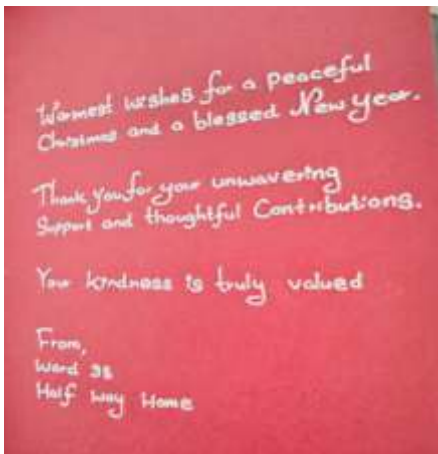 Warmest wishes for a Peaceful
Christmas and a blessed New Year.
Thank you for your unwavering
Support and thoughtful Contributions.
Your kindness is truly valued
From,
Ward
Half Way Home